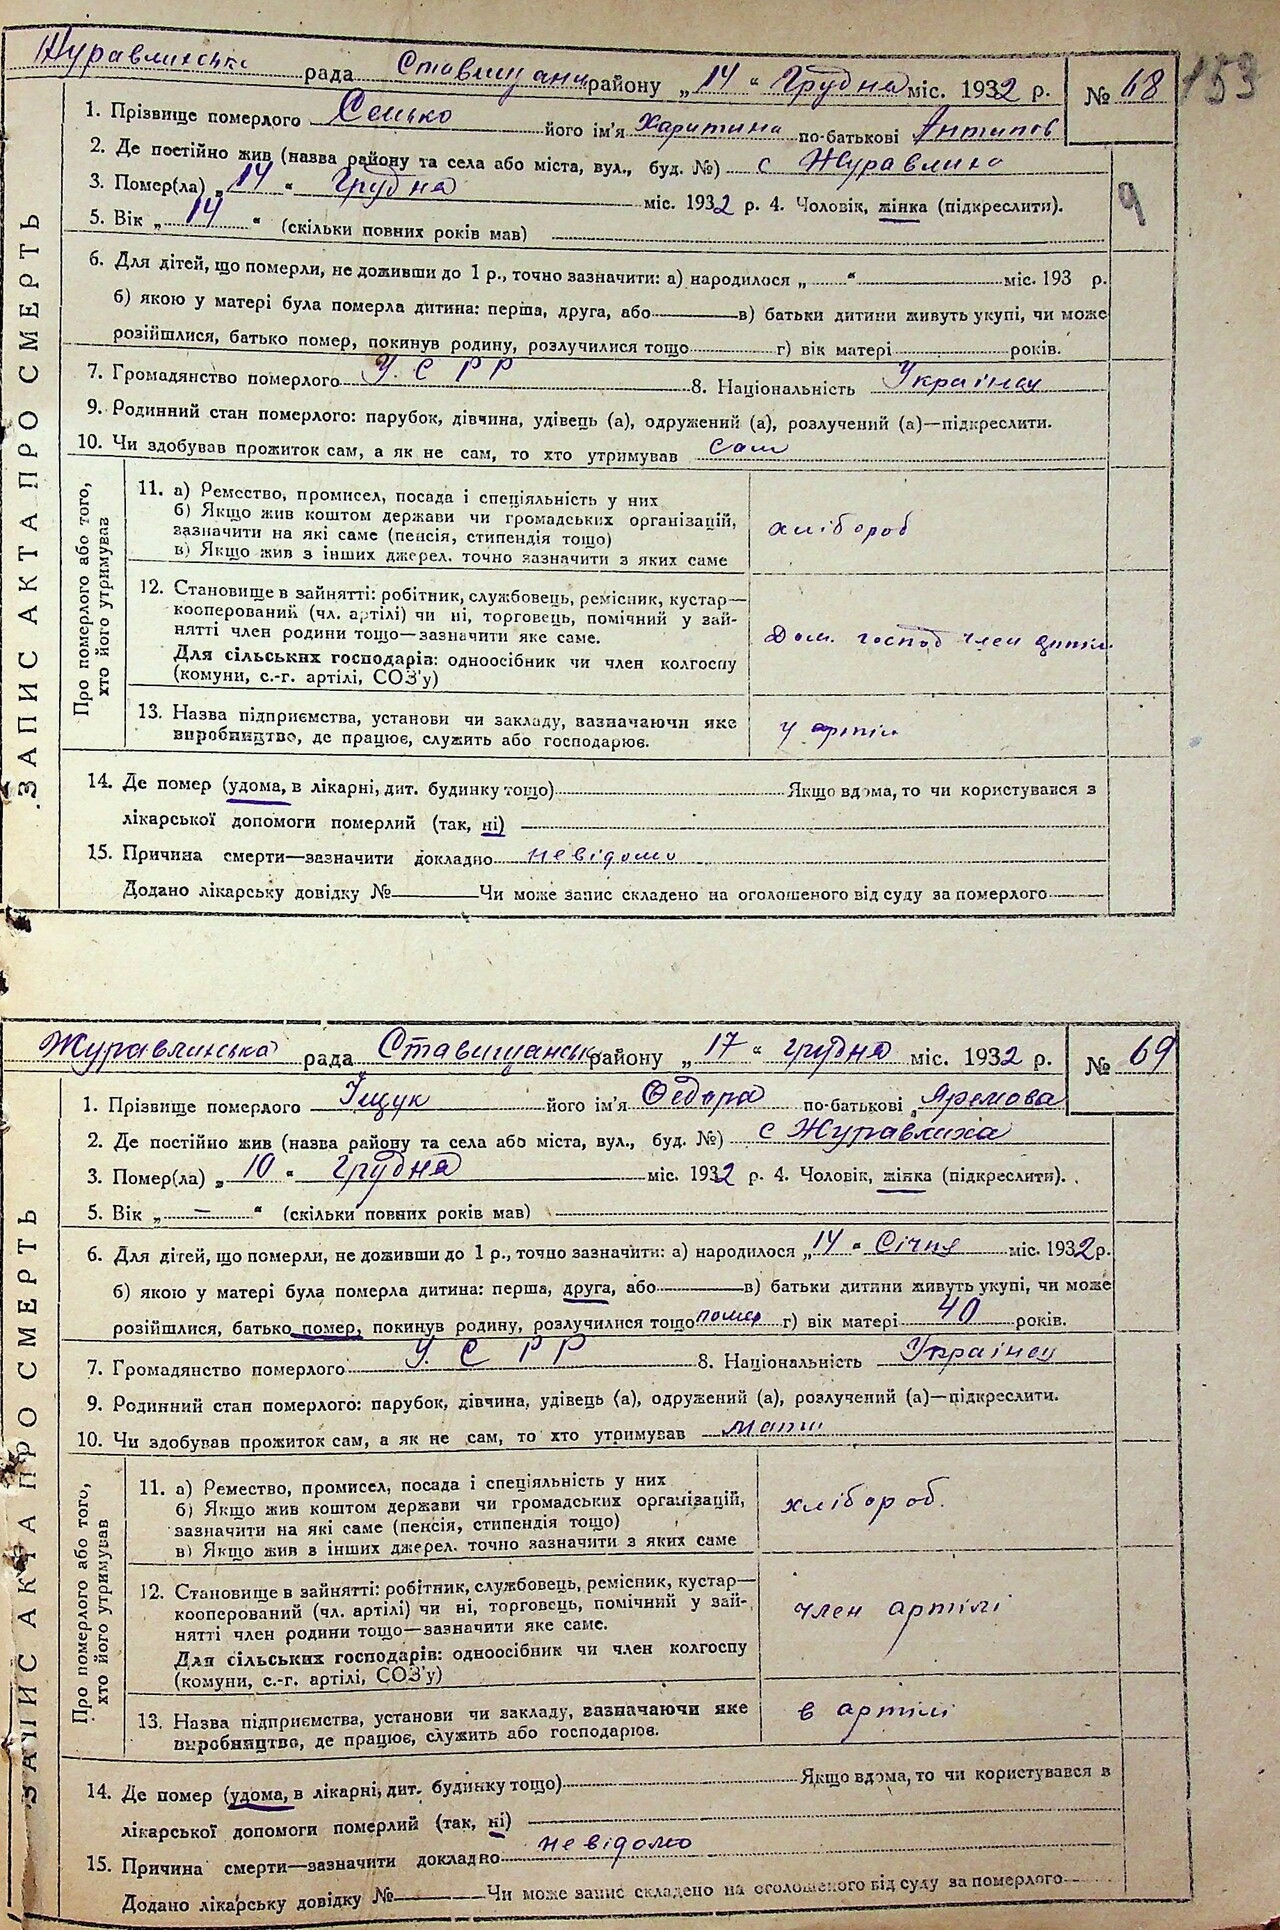 Журавлинська рада Ставищанськ району „14“ Грудня міс. 1932 р. № 68 153
1. Прізвище померлого Сенько його ім'я Харитина по-батькові Антипов
2. Де постійно жив (назва району та села або міста, вул., буд. №) с Журавлиха
3. Помер(ла) „14“ Грудня міс. 1932 р. 4. Чоловік, жінка (підкреслити). 9
5. Вік „14“ (скільки повних років мав)
6. Для дітей, що померли, не доживши до 1 р., точно зазначити: а) народилося „ “ міс. 193 р.
б) якою у матері була померла дитина: перша, друга, або в) батьки дитини живуть укупі, чи може
розійшлися, батько помер, покинув родину, розлучилися тощо г) вік матері років.
7. Громадянство померлого У. С Р Р 8. Національність Українец
9. Родинний стан померлого: парубок, дівчина, удівець (а), одружений (а), розлучений (а)—підкреслити.
10. Чи здобував прожиток сам, а як не сам, то хто утримував сам
11. а) Ремество, промисел, посада і спеціяльність у них
б) Якщо жив коштом держави чи громадських організацій,
зазначити на які саме (пенсія, стипендія тощо)
в) Якщо жив з інших джерел. точно зазначити з яких саме
хлібороб
12. Становище в зайнятті: робітник, службовець, ремісник, кустар—
кооперований (чл. артілі) чи ні, торговець, помічний у зай-
нятті член родини тощо—зазначити яке саме.
Для сільських господарів: одноосібник чи член колгоспу
(комуни, с.-г. артілі, СОЗ'у)
Дом. господ член артіл
13. Назва підприємства, установи чи закладу, вазначаючи яке
виробництво, де працює, служить або господарює.
у артіл
14. Де помер (удома, в лікарні, дит. будинку тощо) Якщо вдома, то чи користувався з
лікарської допомоги померлий (так, ні)
15. Причина смерти—зазначити докладно невідомо
Додано лікарську довідку № Чи може запис складено на оголошеного від суду за померлого
ЗАПИС АКТА ПРО СМЕРТЬ
Про померлого або того,
хто його утримував
Журавлинська рада Ставищанськ району „17“ грудня міс. 1932 р. № 69
1. Прізвище померлого Іщук його ім'я Федора по-батькові Яремова
2. Де постійно жив (назва району та села або міста, вул., буд. №) с Журавлиха
3. Помер(ла) „10“ грудня міс. 1932 р. 4. Чоловік, жінка (підкреслити).
5. Вік „—“ (скільки повних років мав)
6. Для дітей, що померли, не доживши до 1 р., точно зазначити: а) народилося „14“ Січня міс. 1932 р.
б) якою у матері була померла дитина: перша, друга, або в) батьки дитини живуть укупі, чи може
розійшлися, батько помер, покинув родину, розлучилися тощо помер г) вік матері 40 років.
7. Громадянство померлого У. С Р Р 8. Національність Українец
9. Родинний стан померлого: парубок, дівчина, удівець (а), одружений (а), розлучений (а)—підкреслити.
10. Чи здобував прожиток сам, а як не сам, то хто утримував мати
11. а) Ремество, промисел, посада і спеціяльність у них
б) Якщо жив коштом держави чи громадських організацій,
зазначити на які саме (пенсія, стипендія тощо)
в) Якщо жив з інших джерел. точно зазначити з яких саме
хлібороб.
12. Становище в зайнятті: робітник, службовець, ремісник, кустар—
кооперований (чл. артілі) чи ні, торговець, помічний у зай-
нятті член родини тощо—зазначити яке саме.
Для сільських господарів: одноосібник чи член колгоспу
(комуни, с.-г. артілі, СОЗ'у)
член артілі
13. Назва підприємства, установи чи закладу, вазначаючи яке
виробництво, де працює, служить або господарює.
в артілі
14. Де помер (удома, в лікарні, дит. будинку тощо) Якщо вдома, то чи користувався в
лікарської допомоги померлий (так, ні)
15. Причина смерти—зазначити докладно невідомо
Додано лікарську довідку № Чи може запис складено на оголошеного від суду за померлого
ЗАПИС АКТА ПРО СМЕРТЬ
Про померлого або того,
хто його утримував